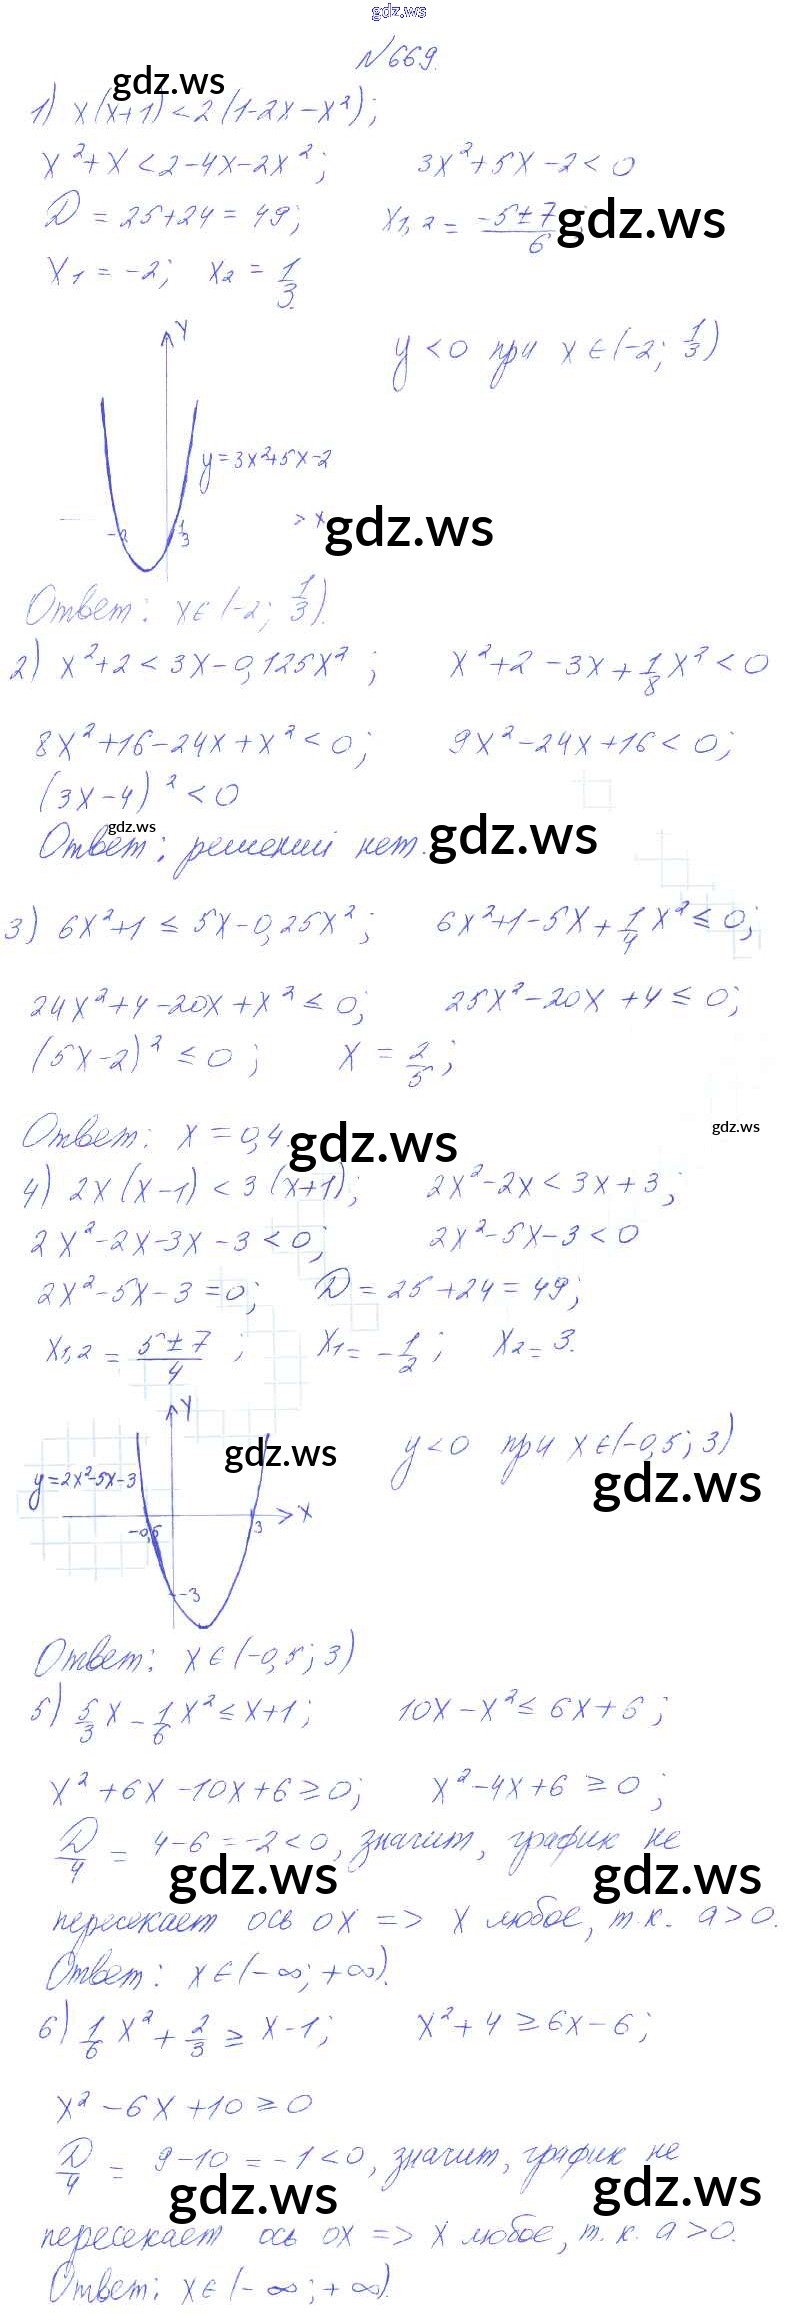 gdz.ws
N669.
gdz.ws
1) x(x+1)<2(1-2x-x²);
x²+x<2-4x-2x²; 3x²+5x-2<0
D=25+24=49; x1,2 = (-5±7)/6; gdz.ws
x1=-2; x2=1/3.
y
y<0 при x∈(-2; 1/3)
y=3x²+5x-2
-2 1/3 x gdz.ws
Ответ: x∈(-2; 1/3).
2) x²+2<3x-0,125x²; x²+2-3x+1/8x²<0
8x²+16-24x+x²<0; 9x²-24x+16<0;
(3x-4)²<0
gdz.ws
Ответ: решений нет. gdz.ws
3) 6x²+1≤5x-0,25x²; 6x²+1-5x+1/4x²≤0;
24x²+4-20x+x²≤0; 25x²-20x+4≤0;
(5x-2)²≤0; x=2/5;
Ответ: x=0,4. gdz.ws gdz.ws
4) 2x(x-1)<3(x+1); 2x²-2x<3x+3;
2x²-2x-3x-3<0; 2x²-5x-3<0
2x²-5x-3=0; D=25+24=49;
x1,2=(5±7)/4; x1=-1/2; x2=3.
y
gdz.ws y<0 при x∈(-0,5; 3)
y=2x²-5x-3 gdz.ws
-0,5 3 x
-3
Ответ: x∈(-0,5; 3)
5) 5/3x-1/6x²≤x+1; 10x-x²≤6x+6;
x²+6x-10x+6≥0; x²-4x+6≥0;
D/4=4-6=-2<0, значит, график не
gdz.ws gdz.ws
пересекает ось ox => x любое, т.к. a>0.
Ответ: x∈(-∞;+∞).
6) 1/6x²+2/3≥x-1; x²+4≥6x-6;
x²-6x+10≥0
D/4=9-10=-1<0, значит, график не
gdz.ws gdz.ws
пересекает ось ox => x любое, т.к. a>0.
Ответ: x∈(-∞;+∞).